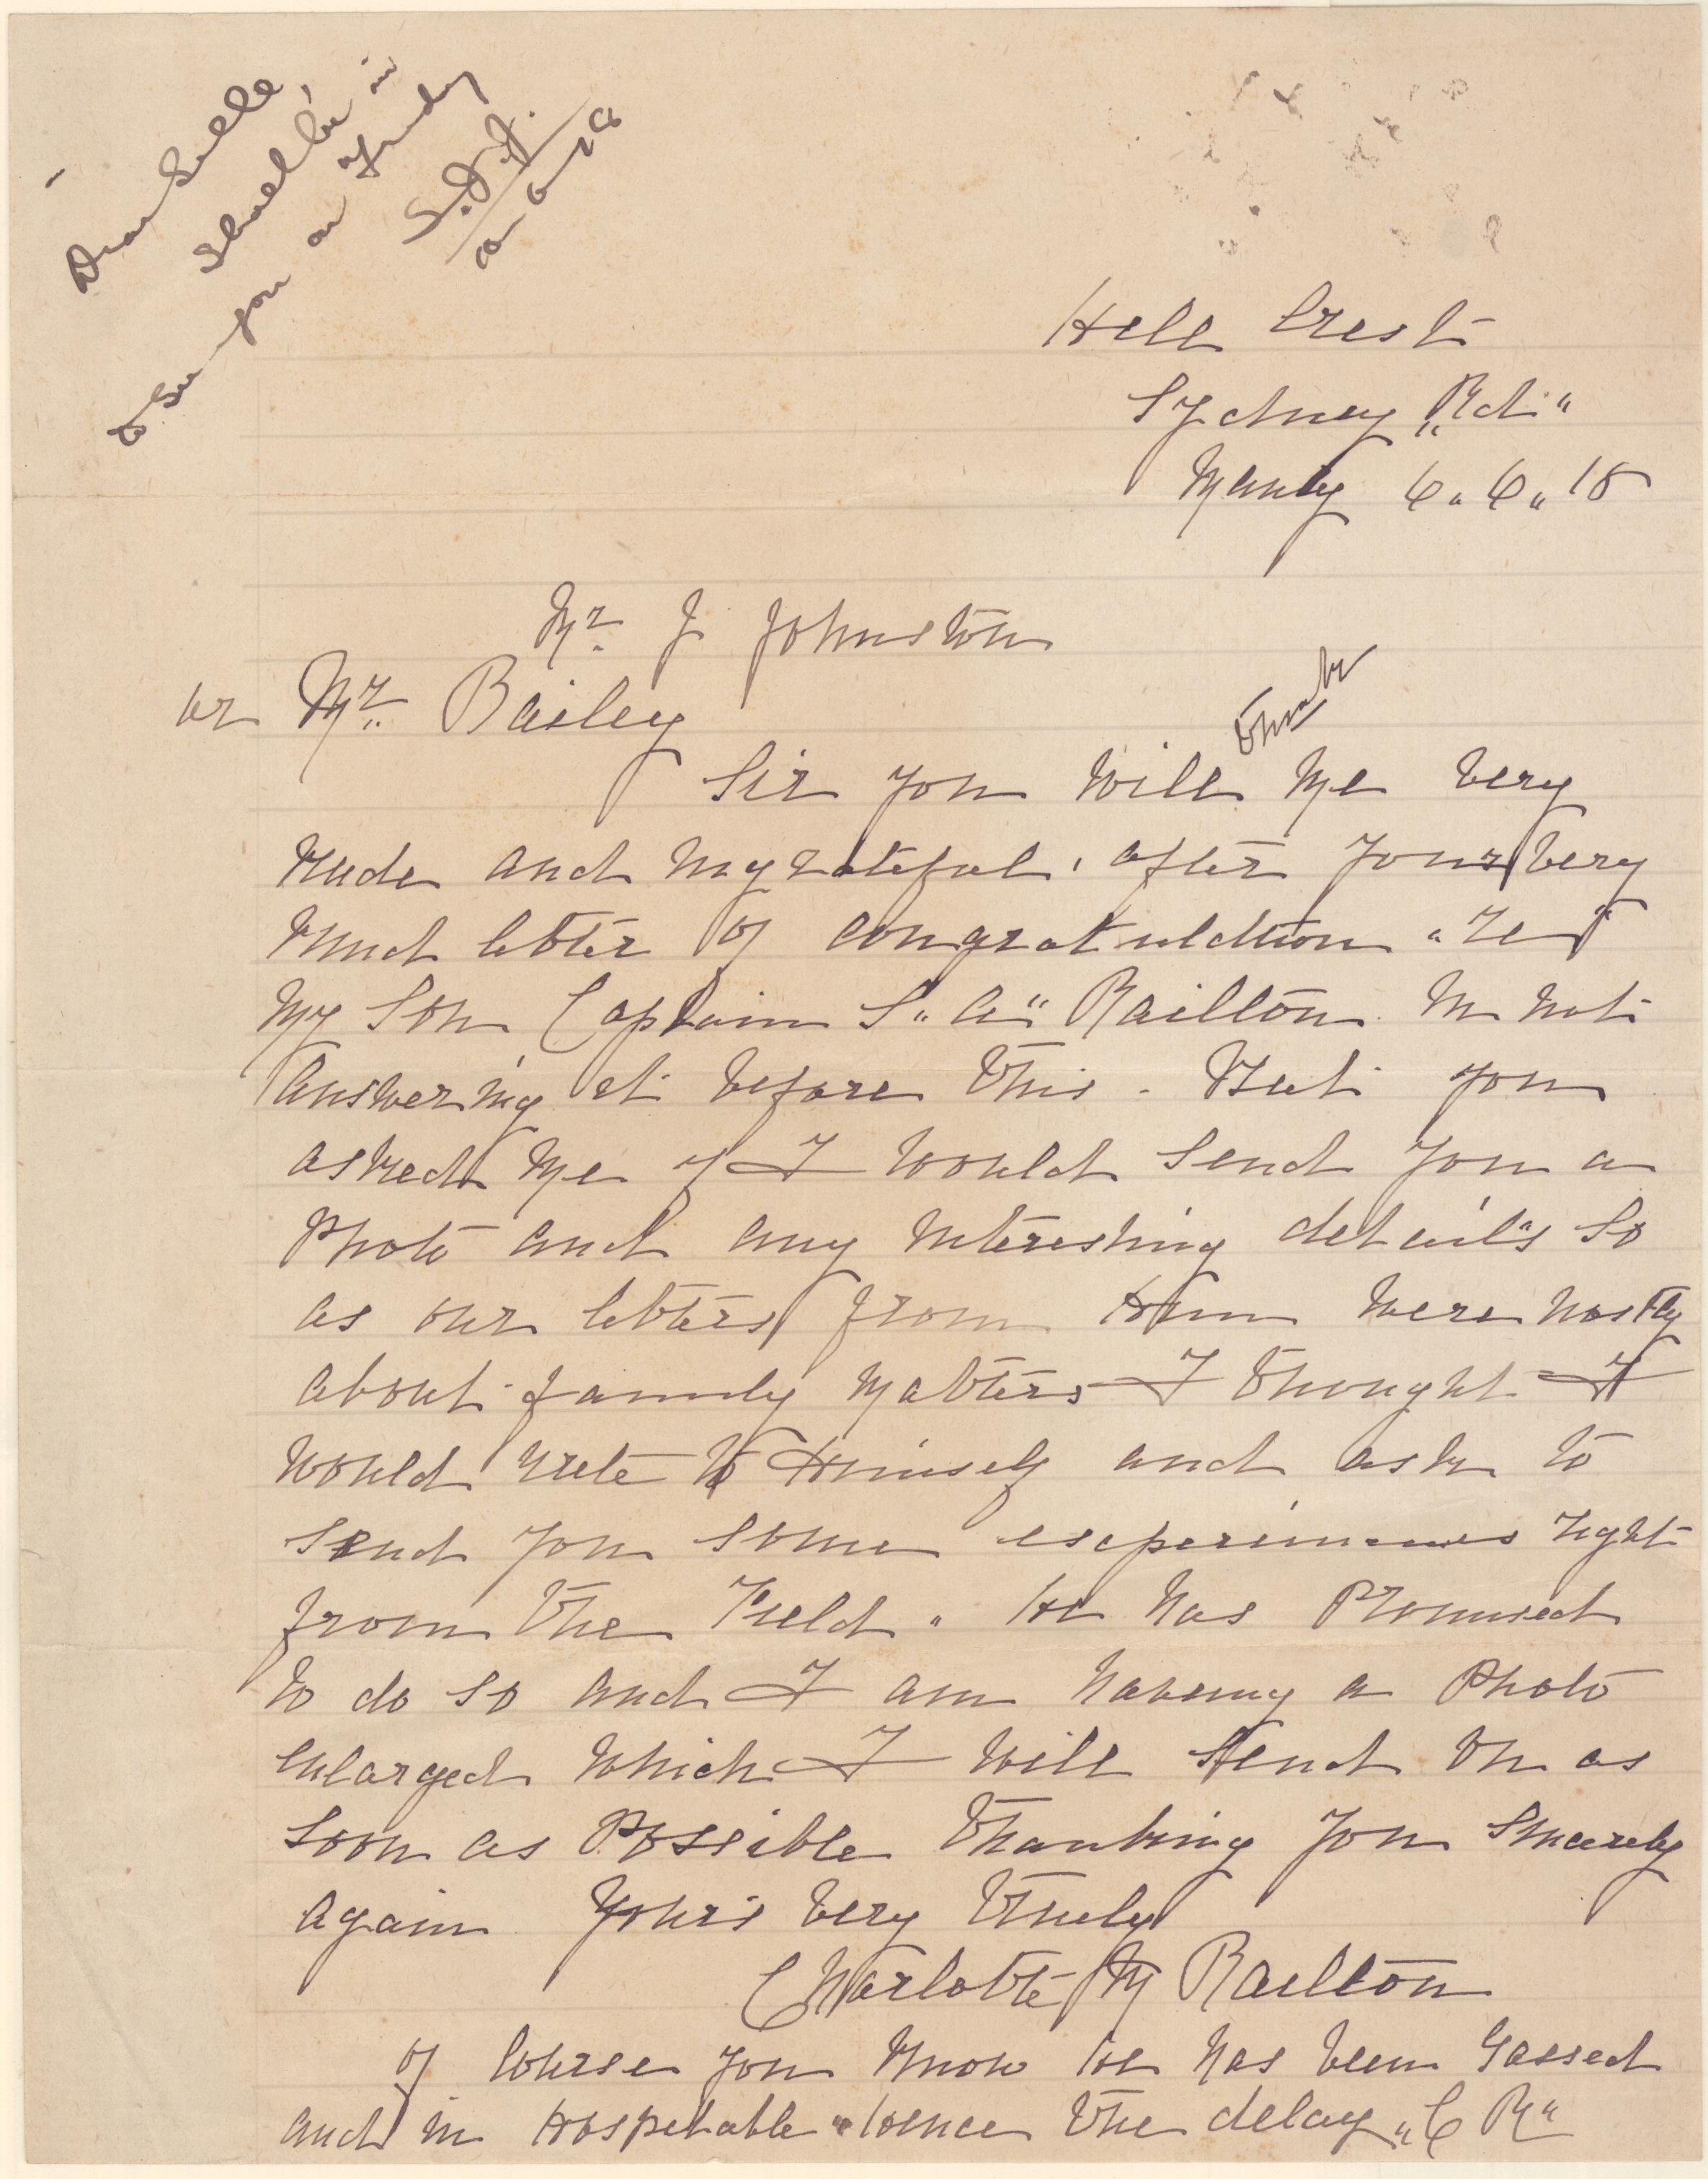 Dear
I shall be in
to see you on Friday
10-6-18
Hill Crest
Sydney "Rd"
Manly 6.6.18
Mr J Johnston
or Mr Bailey
Sir you will think me very
rude and ungrateful, after your very
kind letter of congratulation "re"
my Son Captain S. A. Railton. In not
answering it before this. But you
asked me if I would send you a
Photo and any interesting details So
as our letters from Him were mostly
about family matters I thought I
would write to Himself and ask to
send you some right
from the Field. He has Promised
to do so and I am having a Photo
enlarged which I will send on as
soon as Possible Thanking you Sincerely
again Yours very Truly
Charlotte M Railton
of course you know he has been Gassed
and in Hospetable "hence the delay "C R"